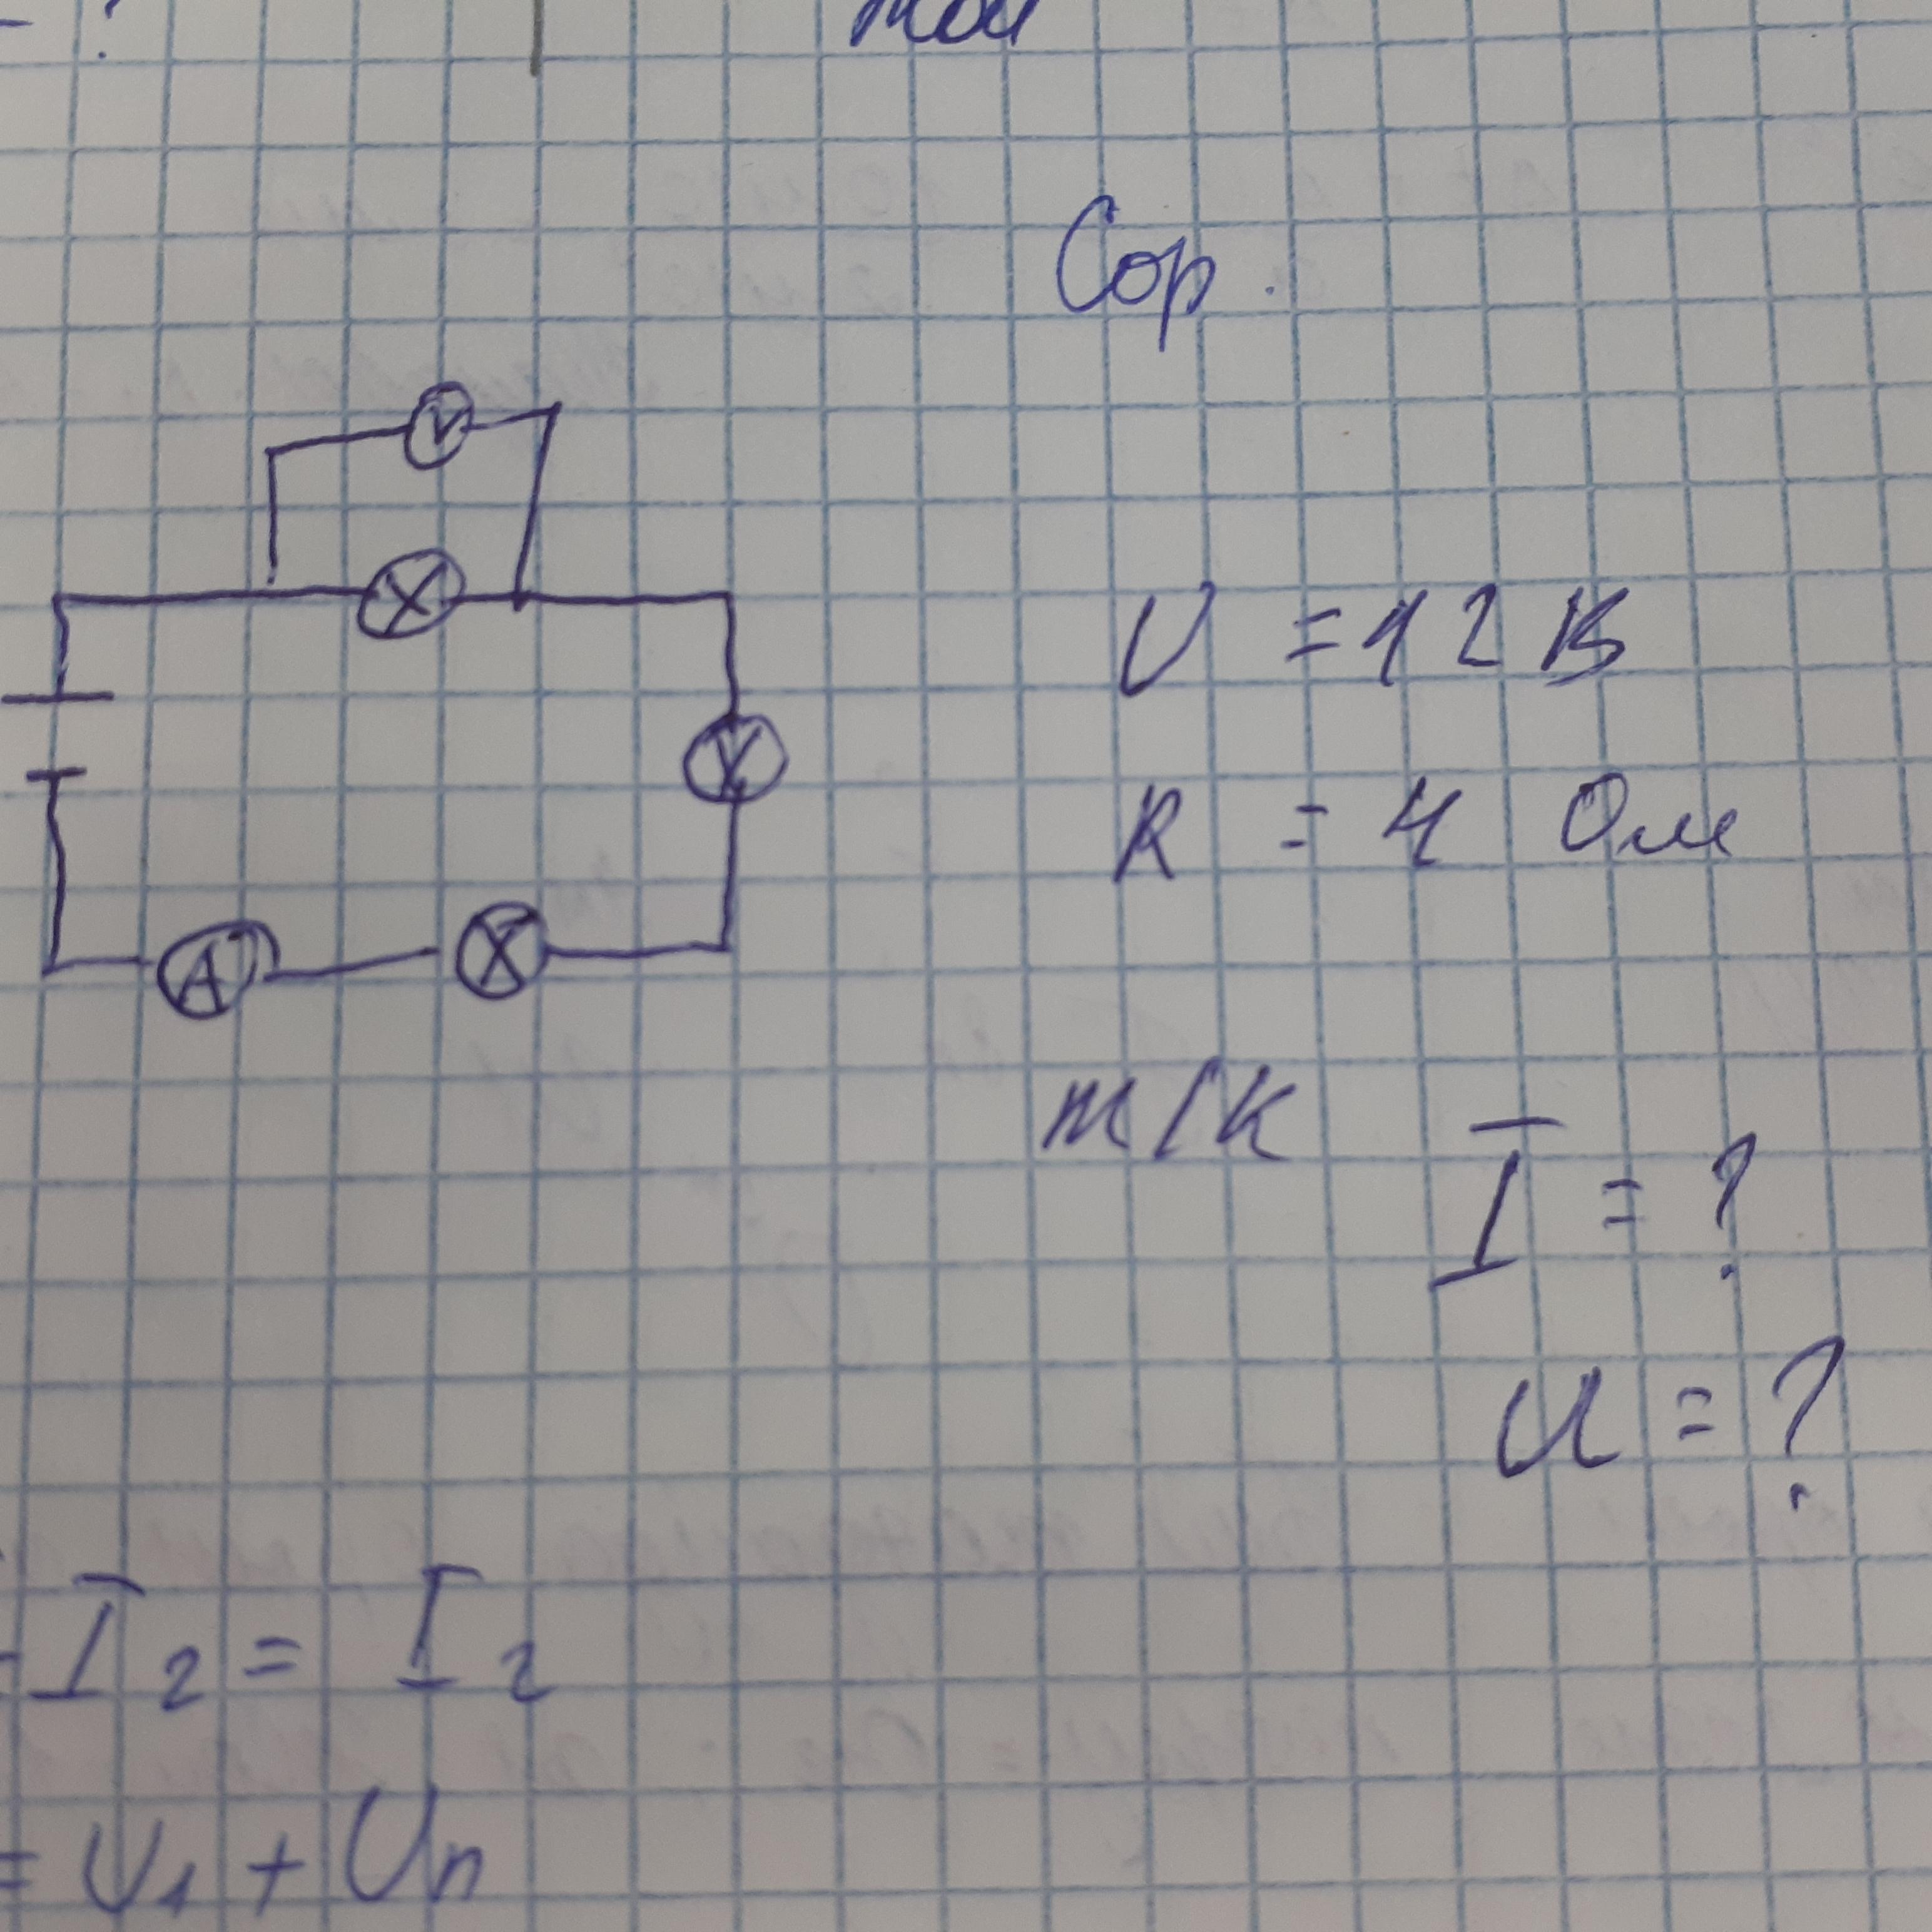 - ?
Сор.
V
X
U = 12 В
X
R = 4 Ом
A X
т/к I = ?
U = ?
- I2 = I2
= U1 + Un